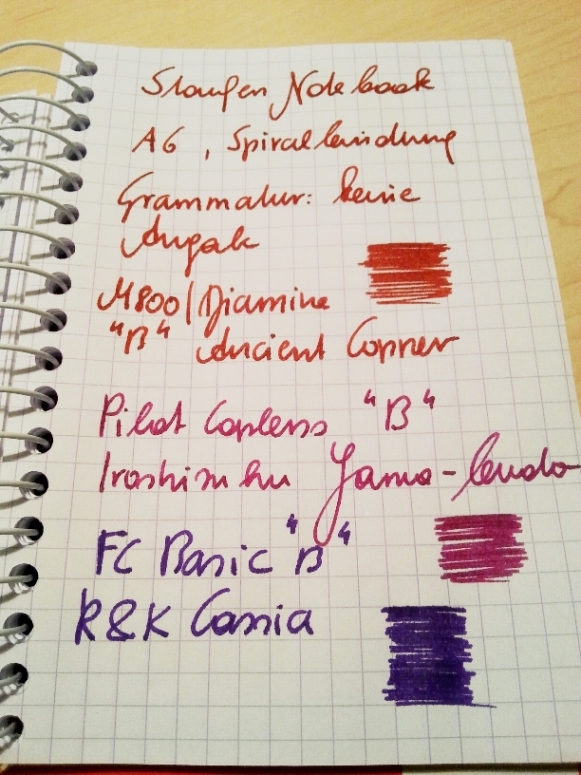 Staufen Notebook
A6, Spiralbindung
Grammatur: keine
Angabe
M800/Diamine
"B" Ancient Copper
Pilot Capless "B"
Iroshizuku Yama-budo
FC Basic "B"
R&K Cassia